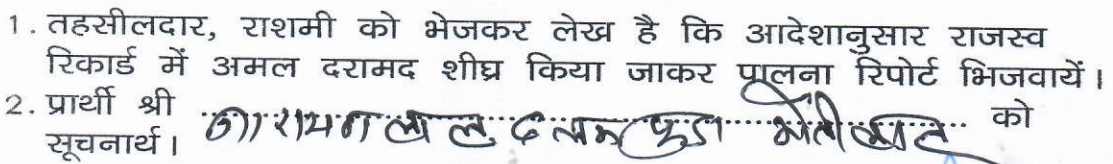 1. तहसीलदार, राशमी को भेजकर लेख है कि आदेशानुसार राजस्व
रिकार्ड में अमल दरामद शीघ्र किया जाकर पालना रिपोर्ट भिजवायें।
2. प्रार्थी श्री नारायण लाल को
सूचनार्थ।